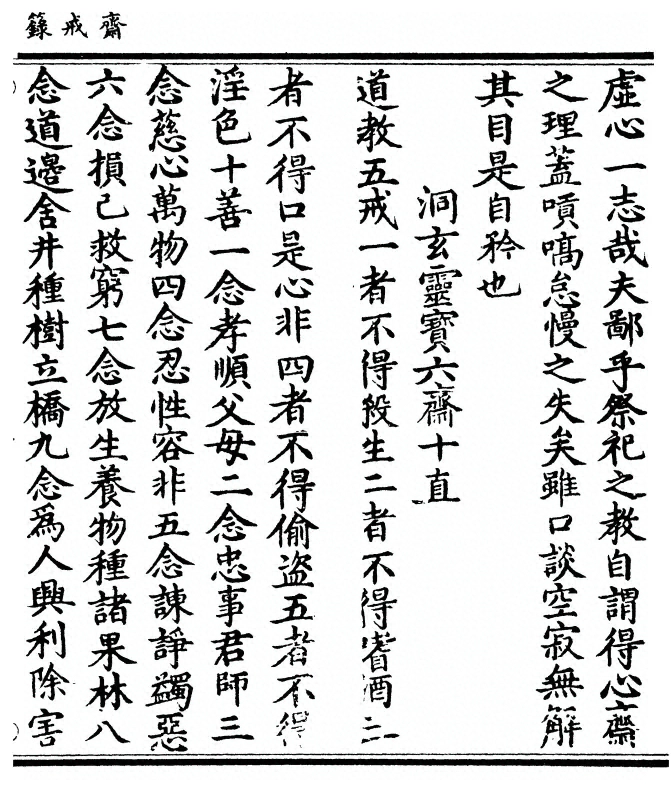 齋戒籙
虛心一志哉夫鄙乎祭祀之教自謂得心齋
之理蓋嗊嗃怠慢之失矣雖口談空寂無解
其目是自矜也
洞玄靈寶六齋十直
道教五戒一者不得殺生二者不得嗜酒三
者不得口是心非四者不得偷盜五者不得
淫色十善一念孝順父母二念忠事君師三
念慈心萬物四念忍性容非五念諫諍蠲惡
六念損己救窮七念放生養物種諸果林八
念道邊舍井種樹立橋九念為人興利除害